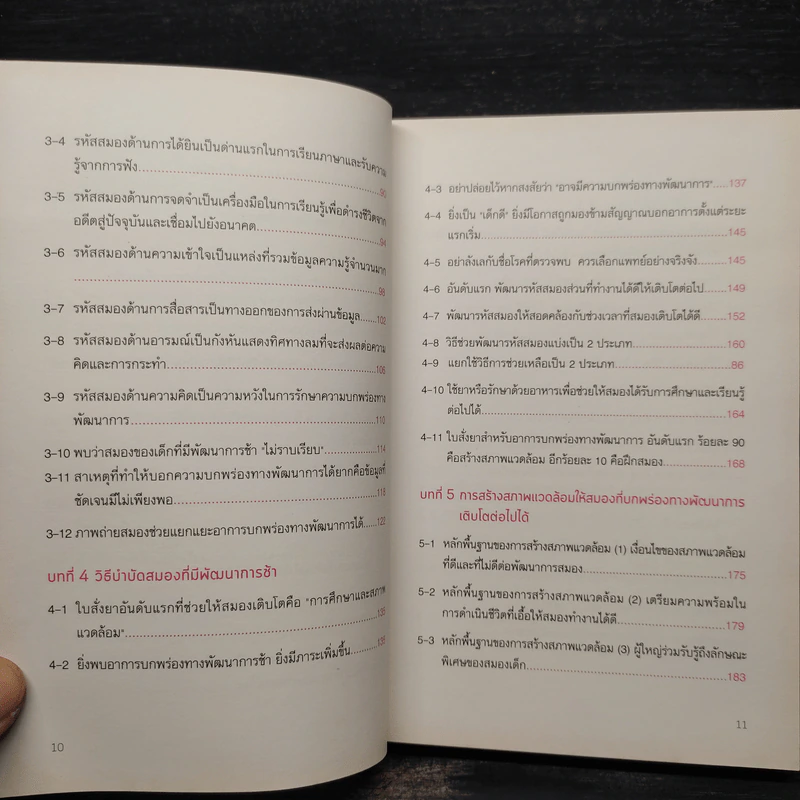 3-4 รหัสสมองด้านการได้ยินเป็นด่านแรกในการเรียนภาษาและรับความ
รู้จากการฟัง..........90
3-5 รหัสสมองด้านการจดจำเป็นเครื่องมือในการเรียนรู้เพื่อดำรงชีวิตจาก
อดีตสู่ปัจจุบันและเชื่อมไปยังอนาคต..........94
3-6 รหัสสมองด้านความเข้าใจเป็นแหล่งที่รวมข้อมูลความรู้จำนวนมาก
..........98
3-7 รหัสสมองด้านการสื่อสารเป็นทางออกของการส่งผ่านข้อมูล..........102
3-8 รหัสสมองด้านอารมณ์เป็นกังหันแสดงทิศทางลมที่จะส่งผลต่อความ
คิดและการกระทำ..........106
3-9 รหัสสมองด้านความคิดเป็นความหวังในการรักษาความบกพร่องทาง
พัฒนาการ..........110
3-10 พบว่าสมองของเด็กที่มีพัฒนาการช้า "ไม่ราบเรียบ"..........114
3-11 สาเหตุที่ทำให้บอกความบกพร่องทางพัฒนาการได้ยากคือข้อมูลที่
ชัดเจนมีไม่เพียงพอ..........118
3-12 ภาพถ่ายสมองช่วยแยกแยะอาการบกพร่องทางพัฒนาการได้..........122
บทที่ 4 วิธีบำบัดสมองที่มีพัฒนาการช้า
4-1 ใบสั่งยาอันดับแรกที่ช่วยให้สมองเติบโตคือ "การศึกษาและสภาพ
แวดล้อม"..........
4-2 ยิ่งพบอาการบกพร่องทางพัฒนาการช้า ยิ่งมีภาระเพิ่มขึ้น..........
10
4-3 อย่าปล่อยไว้หากสงสัยว่า "อาจมีความบกพร่องทางพัฒนาการ".....137
4-4 ยิ่งเป็น "เด็กดี" ยิ่งมีโอกาสถูกมองข้ามสัญญาณบอกอาการตั้งแต่ระยะ
แรกเริ่ม..........145
4-5 อย่าลังเลกับชื่อโรคที่ตรวจพบ ควรเลือกแพทย์อย่างจริงจัง..........145
4-6 อันดับแรก พัฒนารหัสสมองส่วนที่ทำงานได้ดีให้เติบโตต่อไป.......149
4-7 พัฒนารหัสสมองให้สอดคล้องกับช่วงเวลาที่สมองเติบโตได้ดี........152
4-8 วิธีช่วยพัฒนารหัสสมองแบ่งเป็น 2 ประเภท..........160
4-9 แยกใช้วิธีการช่วยเหลือเป็น 2 ประเภท..........86
4-10 ใช้ยาหรือรักษาด้วยอาหารเพื่อช่วยให้สมองได้รับการศึกษาและเรียนรู้
ต่อไปได้..........164
4-11 ใบสั่งยาสำหรับอาการบกพร่องทางพัฒนาการ อันดับแรก ร้อยละ 90
คือสร้างสภาพแวดล้อม อีกร้อยละ 10 คือฝึกสมอง..........168
บทที่ 5 การสร้างสภาพแวดล้อมให้สมองที่บกพร่องทางพัฒนาการ
เติบโตต่อไปได้
5-1 หลักพื้นฐานของการสร้างสภาพแวดล้อม (1) เงื่อนไขของสภาพแวดล้อม
ที่ดีและที่ไม่ดีต่อพัฒนาการสมอง..........175
5-2 หลักพื้นฐานของการสร้างสภาพแวดล้อม (2) เตรียมความพร้อมใน
การดำเนินชีวิตที่เอื้อให้สมองทำงานได้ดี..........179
5-3 หลักพื้นฐานของการสร้างสภาพแวดล้อม (3) ผู้ใหญ่ร่วมรับรู้ถึงลักษณะ
พิเศษของสมองเด็ก..........183
11